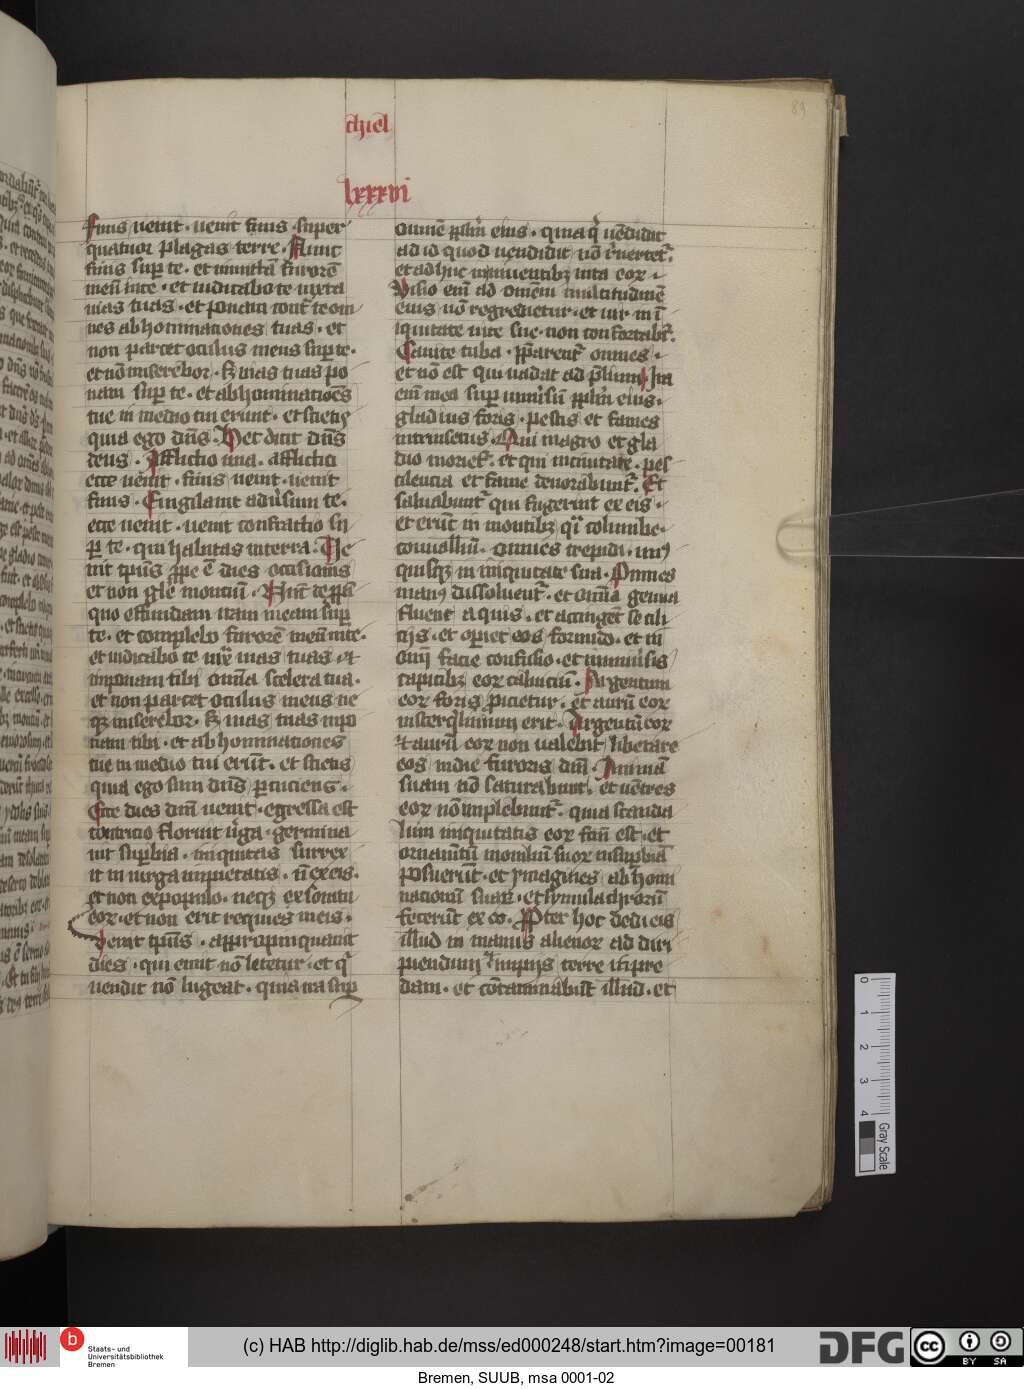 89
chiel
lxxxvi
finis uenit · uenit finis · super
quatuor plagas terre · Nunc
finis sup te · et inmittā furorē
meū in te · et iudicabo te iuxta
uias tuas · et ponam cont̄ te om
nes abhominationes tuas · et
non parcet oculus meus sup te ·
et nō miserebor · sꝫ uias tuas po
nam sup te · et abhominatioēs
tue in medio tui erunt · et scietis
quia ego dn̄s · Hec dicit dn̄s
deus · Afflictio una · afflictio
ecce uenit · finis uenit · uenit
finis · Euigilauit adūsum te ·
ecce uenit · uenit contractio su
ꝑ te · qui habitas in terra · Ue
nit tp̄us ꝓpe ē dies occisionis
et non gl̄e montiū · Nūc de ꝓpī
quo effundam iram meam sup
te · et complebo furorē meū in te ·
et iudicabo te iux̄ uias tuas · et
imponam tibi om̄ia scelera tua ·
et non parcet oculus meus ne
qꝫ miserebor · sꝫ uias tuas inpo
nam tibi · et abhominationes
tue in medio tui erūt · et scietis
quia ego sum dn̄s percuciens ·
Ecce dies ecce uenit · egressa est
contricio floruit uirga · germina
uit supbia · iniquitas surrex
it in uirga impietatis · nō ex eis ·
et non expopulo · neqꝫ ex sonitu
eoꝝ · et non erit requies in eis ·
Uenit tp̄us · appropinquauit
dies · qui emit nō letetur · et q̄
uendit nō lugeat · quia ira sup
omnē ppl̄m eius · quia q̄ uēdidit
ad id quod uendidit nō r̄uertet̄ ·
et adhuc in uiuentibꝫ uita eoꝝ ·
Uisio eni ad omēm multitudinē
eius nō regredietur · et uir in ī
iquitate uite sue · non confortabit̄ ·
Canite tuba · p̄parent̄ omnes ·
et nō est qui uadat ad p̄lium Ira
eni mea sup uniūsū ppl̄m eius ·
gladius foris · pestis et fames
intrinsecus · Qui in agro et gla
dio moriet̄ · et qui in ciuitate · pes
tilencia et fame deuorabunt̄ · Et
saluabunt̄ qui fugerint ex eis ·
et erūt in montibꝫ q̄i columbe ·
conualliū · omnes trepidi · unꝰ
quisqꝫ in iniquitate sua · Omnes
manꝰ dissoluent̄ · et om̄ia genua
fluent aquis · et accinget se cili
cijs · et operiet eos formido · et in
omī facie confusio · et in uniūsis
capitibꝫ eoꝝ caluiciū · Argentum
eoꝝ foris proicietur · et aurū eoꝝ
in sterq̄linium erit · Argentū eoꝝ
et aurū eoꝝ non ualebit liberare
eos in die furoris dn̄i · Animā
suam nō saturabunt · et uētres
eoꝝ nō implebunt̄ · quia scanda
lum iniquitatis eoꝝ factū est · et
ornamētū moniliū suoꝝ in supbiā
posuerūt · et ymagines abhomi
nationū suaꝝ · et symulachroꝝ
fecerūt ex eo · Propter hoc dedi eis
illud in manus alienoꝝ ad diri
piendum et impijs terre in pre
dam · et cōtaminabūt illud · et
0 1 2 3 4
Gray Scale
b
Staats- und
Universitätsbibliothek
Bremen
(c) HAB http://diglib.hab.de/mss/ed000248/start.htm?image=00181
DFG
cc BY SA
Bremen, SUUB, msa 0001-02